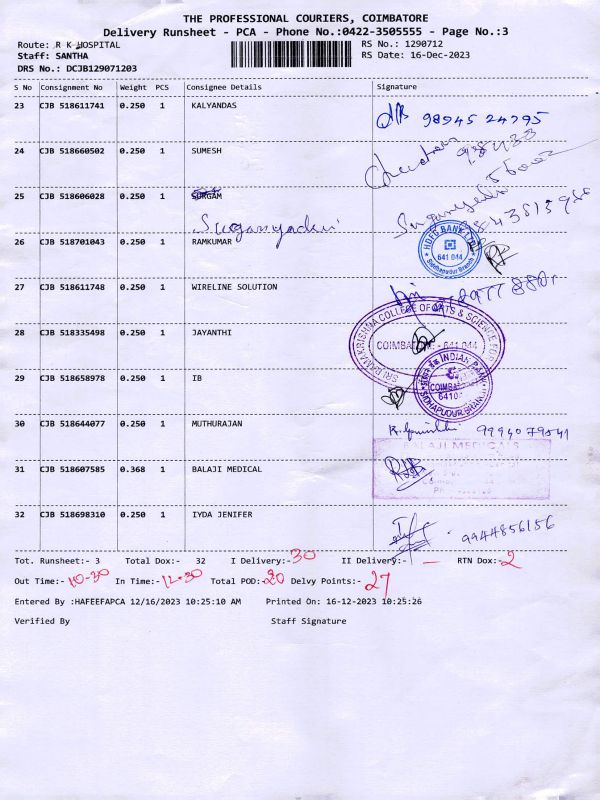 THE PROFESSIONAL COURIERS, COIMBATORE
Delivery Runsheet - PCA - Phone No.:0422-3505555 - Page No.:3
Route: R K HOSPITAL
RS No.: 1290712
Staff: SANTHA
RS Date: 16-Dec-2023
DRS No.: DCJB129071203
S No Consignment No Weight PCS Consignee Details Signature
23 CJB 518611741 0.250 1 KALYANDAS
98945 24795
24 CJB 518660502 0.250 1 SUMESH
25 CJB 518606028 0.250 1 SURGAM
Sugansyadevi
26 CJB 518701043 0.250 1 RAMKUMAR
HDFC BANK LTD
641 044
Siddhapudur Branch
27 CJB 518611748 0.250 1 WIRELINE SOLUTION
28 CJB 518335498 0.250 1 JAYANTHI
SRI RAMAKRISHNA COLLEGE OF ARTS & SCIENCE FOR
COIMBATORE - 641 044
29 CJB 518658978 0.250 1 IB
INDIAN BANK
COIMBATORE
SIDHAPUDUR BRANCH
30 CJB 518644077 0.250 1 MUTHURAJAN
9994079541
31 CJB 518607585 0.368 1 BALAJI MEDICAL
BALAJI MEDICALS
32 CJB 518698310 0.250 1 IYDA JENIFER
9944856156
Tot. Runsheet:- 3 Total Dox:- 32 I Delivery:- 30 II Delivery:- — RTN Dox:- 2
Out Time:- 10-30 In Time:- 12-30 Total POD:- 30 Delvy Points:- 27
Entered By :HAFEEFAPCA 12/16/2023 10:25:10 AM Printed On: 16-12-2023 10:25:26
Verified By Staff Signature